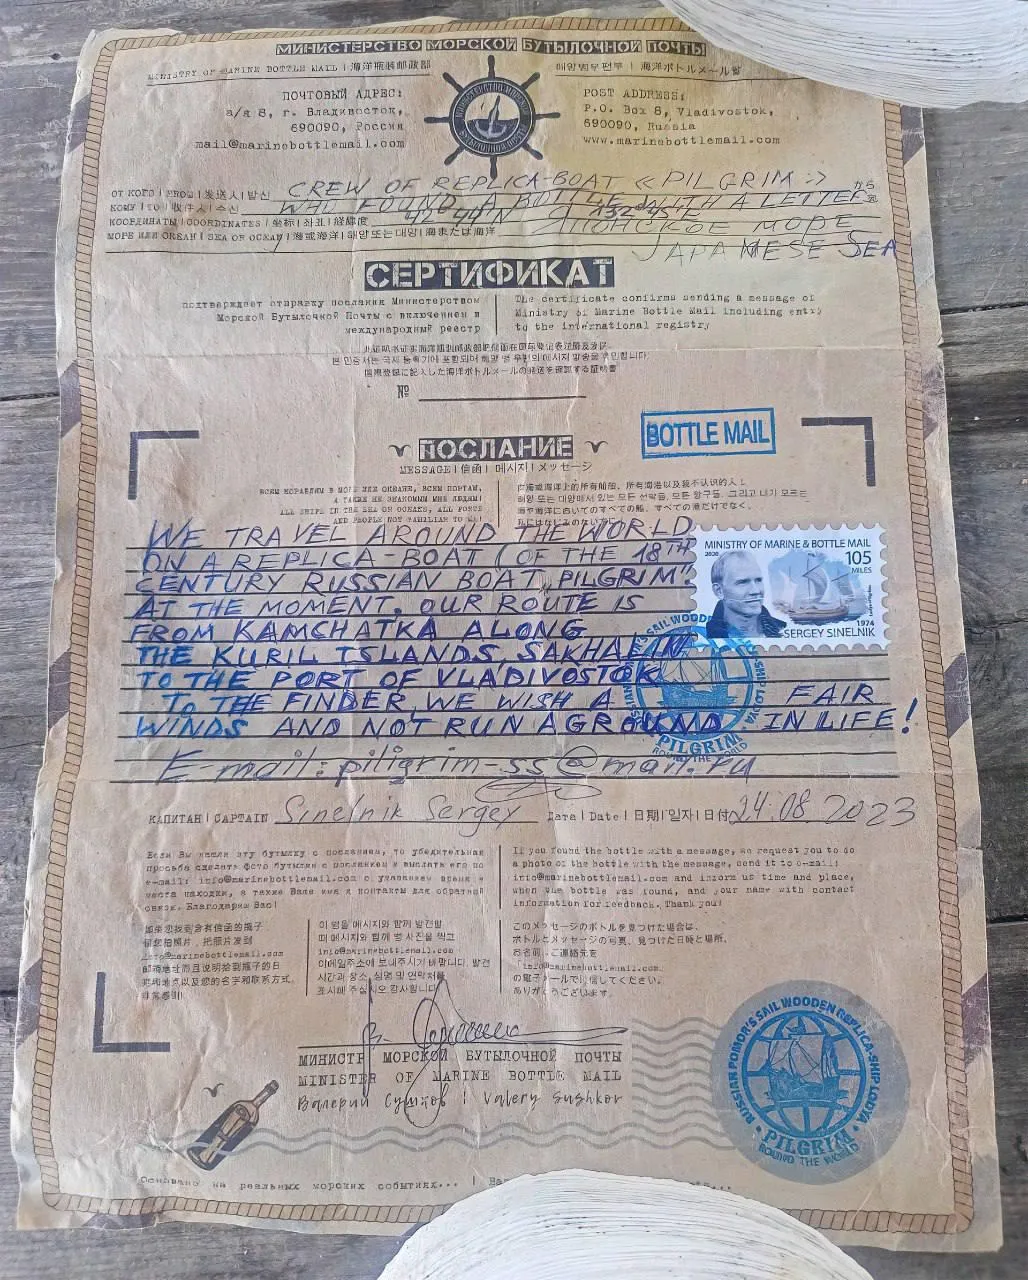 МИНИСТЕРСТВО МОРСКОЙ БУТЫЛОЧНОЙ ПОЧТЫ
MINISTRY OF MARINE BOTTLE MAIL | 海洋瓶装邮政部
海洋ボトルメール省
ПОЧТОВЫЙ АДРЕС:
а/я 8, г. Владивосток,
690090, Россия
mail@marinebottlemail.com
POST ADDRESS:
P.O. Box 8, Vladivostok,
690090, Russia
www.marinebottlemail.com
ОТ КОГО | FROM | 发送人 | 발신 CREW OF REPLICA-BOAT «PILGRIM» から
КОМУ | TO | 收件人 | 수신 WHO FOUND A BOTTLE WITH A LETTER
КООРДИНАТЫ | COORDINATES | 坐标 | 좌표 | 経緯度 42°44'N 132°45'E
МОРЕ ИЛИ ОКЕАН | SEA OR OCEAN | 海或海洋 | 해양 또는 대양 | 海または海洋 ЯПОНСКОЕ МОРЕ
JAPANESE SEA
СЕРТИФИКАТ
подтверждает отправку послания Министерством
Морской Бутылочной Почты с включением в
международный реестр
The certificate confirms sending a message of
Ministry of Marine Bottle Mail including entry
to the international registry
国際登録に記入した海洋ボトルメールの発送を確認する証明書
№
BOTTLE MAIL
ПОСЛАНИЕ
MESSAGE | 信函 | 메시지 | メッセージ
ВСЕМ КОРАБЛЯМ В МОРЕ ИЛИ ОКЕАНЕ, ВСЕМ ПОРТАМ,
А ТАКЖЕ НЕ ЗНАКОМЫМ МНЕ ЛЮДЯМ!
ALL SHIPS IN THE SEA OR OCEANS, ALL PORTS
AND PEOPLE NOT FAMILIAR TO ME!
WE TRAVEL AROUND THE WORLD
ON A REPLICA-BOAT (OF THE 18TH
CENTURY RUSSIAN BOAT „PILGRIM"
AT THE MOMENT, OUR ROUTE IS
FROM KAMCHATKA ALONG
THE KURIL ISLANDS, SAKHALIN
TO THE PORT OF VLADIVOSTOK
TO THE FINDER, WE WISH A FAIR
WINDS AND NOT RUN AGROUND IN LIFE!
E-mail: piligrim-ss@mail.ru
MINISTRY OF MARINE & BOTTLE MAIL
105
MILES
1974
SERGEY SINELNIK
PILGRIM
ROUND THE WORLD
КАПИТАН | CAPTAIN Sinelnik Sergey Дата | Date | 日期 | 일자 | 日付 24.08 2023
Если Вы нашли эту бутылку с посланием, то убедительная
просьба сделать фото бутылки с посланием и выслать его по
e-mail: info@marinebottlemail.com с указанием время и
места находки, а также Ваше имя и контакты для обратной
связи. Благодарим Вас!
If you found the bottle with a message, we request you to do
a photo of the bottle with the message, send it to e-mail:
info@marinebottlemail.com and inform us time and place,
when the bottle was found, and your name with contact
information for feedback. Thank you!
如果您找到含有信函的瓶子
请您拍照片, 把照片发到
info@marinebottlemail.com
邮箱地址而且说明拾到瓶子的日
期和地点以及您的名字和联系方式.
非常感谢!
이 병을 메시지와 함께 발견할
때 메시지와 함께 병 사진을 찍고
info@marinebottlemail.com
이메일주소에 보내주시기 바랍니다. 발견
시간과 장소, 성명 및 연락처를
표시해 주십시오 감사합니다
このメッセージのボトルを見つけた場合は、
ボトルとメッセージの写真、見つけた日時と場所、
お名前、ご連絡先を
info@marinebottlemail.com
の電子メールで送信してください。
ありがとうございます。
МИНИСТР МОРСКОЙ БУТЫЛОЧНОЙ ПОЧТЫ
MINISTER OF MARINE BOTTLE MAIL
Валерий Сушков | Valery Sushkov
RUSSIAN POMOR'S SAIL WOODEN REPLICA-SHIP LODIA
PILGRIM
ROUND THE WORLD
Основано на реальных морских событиях... |